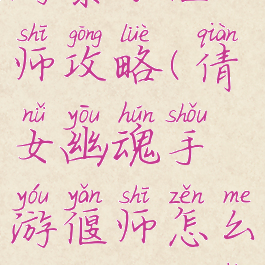 shī gōng lüè qiàn
师攻略(倩
nǚ yōu hún shǒu
女幽魂手
yóu yǎn shī zěn me
游偃师怎么